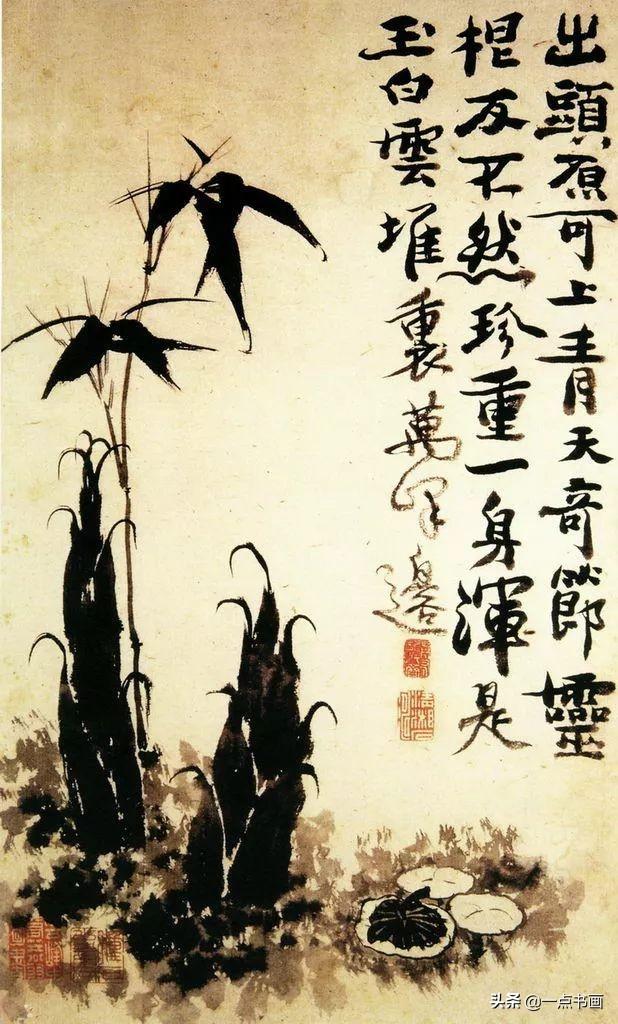 出頭原可上青天奇節靈
根反不然珍重一身渾是
玉白雲堆裏萬峰邊
头条 @一点书画